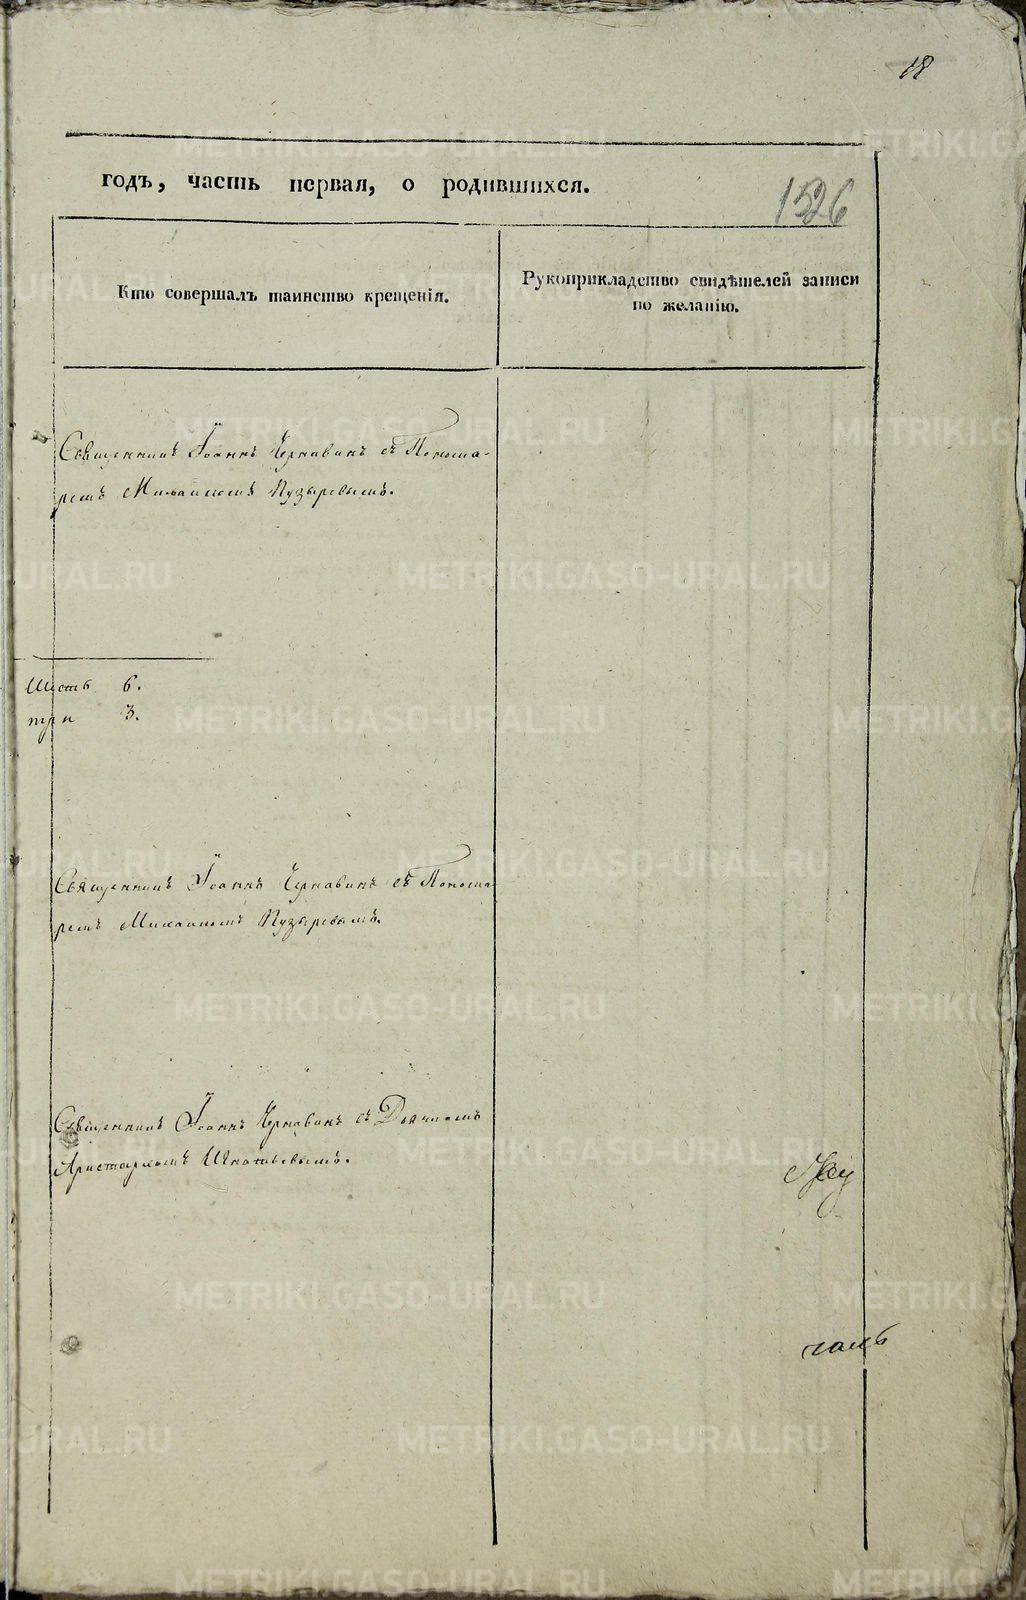 18
годъ, часть первая, о родившихся.
1526
Кто совершалъ таинство крещенія.
Рукоприкладство свидѣтелей записи
по желанію.
Священникъ Іоаннъ Чернавинъ съ Понома-
ремъ Михаиломъ Пузыревымъ.
Шесть 6.
три 3.
Священникъ Іоаннъ Чернавинъ съ Понома
ремъ Михаиломъ Пузыревымъ.
Священникъ Іоаннъ Чернавинъ съ Дьячкомъ
Аристархомъ Игнатьевымъ.
METRIKI.GASO-URAL.RU